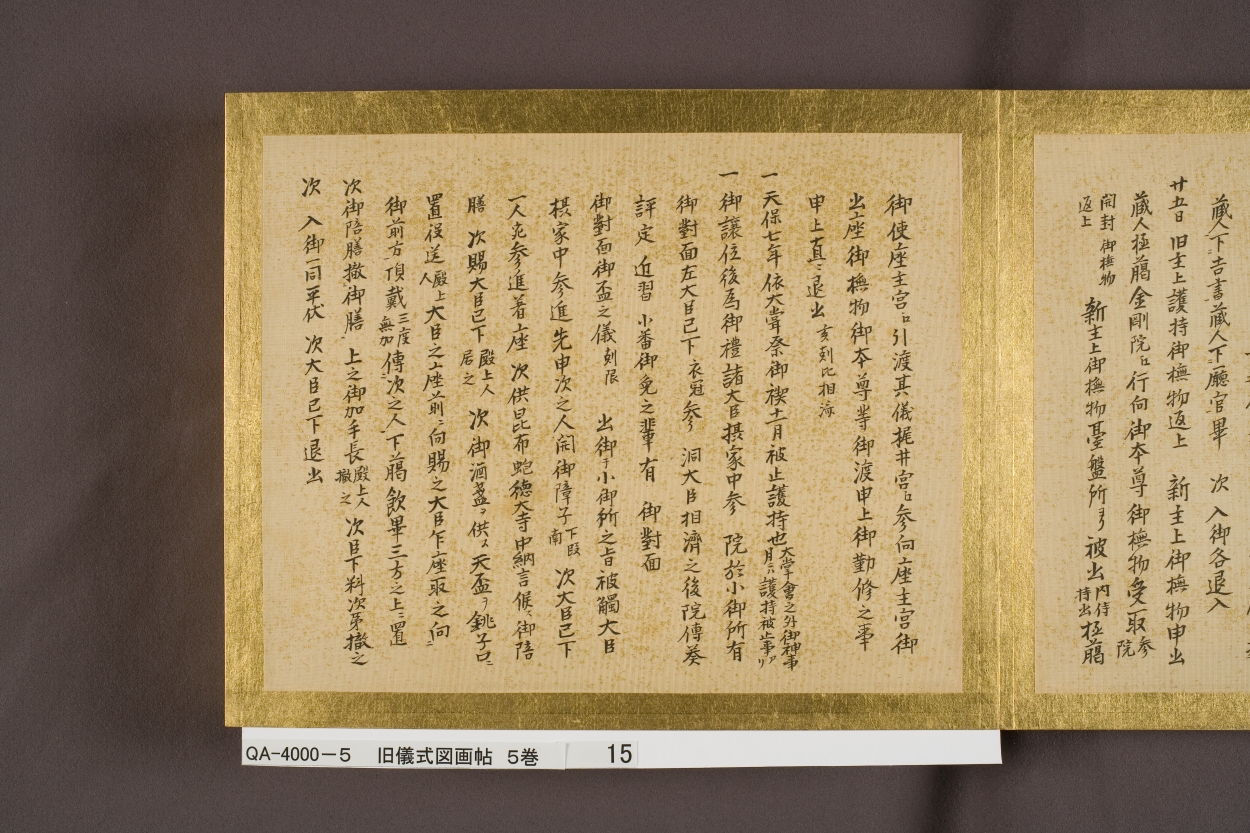 蔵人下吉書蔵人下廳官畢 次 入御各退入
廿五日 旧主上護持御撫物返上 新主上御撫物申出
蔵人極﨟金剛院江行向御本尊御撫物受取参院
開封御撫物返上 新主上御撫物臺盤所ヨリ被出内侍持出極﨟
御使座主宮江引渡其儀梶井宮江参向座主宮御
出座御撫物御本尊等御渡申上御勤修之事
申上直ニ退出亥剋比相済
一天保七年依大嘗祭御禊十一月被止護持也大嘗會之外御神事月ニハ護持被止事アリ
一御譲位後為御禮諸大臣摂家中参 院於小御所有
御對面左大臣已下衣冠参 洞大臣相濟之後院傳葵
評定 近習 小番御免之輩有 御對面
御對面御盃之儀剋限 出御于小御所之旨被觸大臣
摂家中参進先申次之人開御障子下段南 次大臣已下
一人宛参進着座 次供昆布蚫徳大寺中納言候ニ御陪
膳 次賜大臣已下殿上人居之 次御酒盞ヲ供ス天盃ヲ銚子口ニ
置役送殿上人大臣之座前ニ向賜之大臣乍座取之向
御前方頂戴三度無加傳次之人下﨟飲畢三方之上ニ置
次御陪膳撤御膳 上之御加手長殿上人撤之 次臣下料次第撤之
次 入御一同平伏 次大臣已下退出
QA-4000-5 旧儀式図画帖 5巻 15